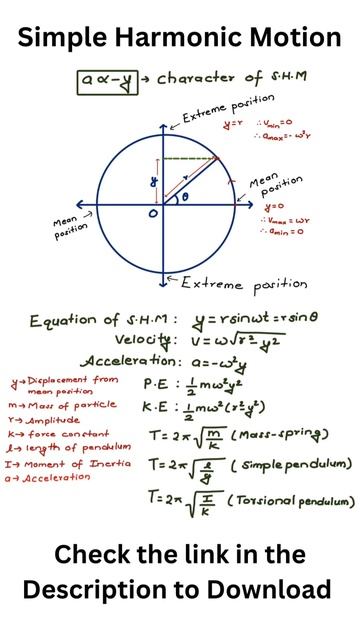 Simple Harmonic Motion
a ∝ -y → character of S.H.M
Extreme position
y=r ∴ Vmin=0
∴ amax=-ω²r
y
r
θ
O
Mean position
y=0
∴ Vmax=ωr
∴ amin=0
Mean position
Extreme position
Equation of S.H.M: y=rsinωt=rsinθ
Velocity: V=ω√r²-y²
Acceleration: a=-ω²y
P.E: 1/2 mω²y²
K.E: 1/2 mω²(r²-y²)
T=2π√m/k (Mass-spring)
T=2π√l/g (Simple pendulum)
T=2π√I/k (Torsional pendulum)
y→Displacement from
mean position
m→Mass of particle
r→Amplitude
k→force constant
l→length of pendulum
I→Moment of Inertia
a→Acceleration
Check the link in the
Description to Download